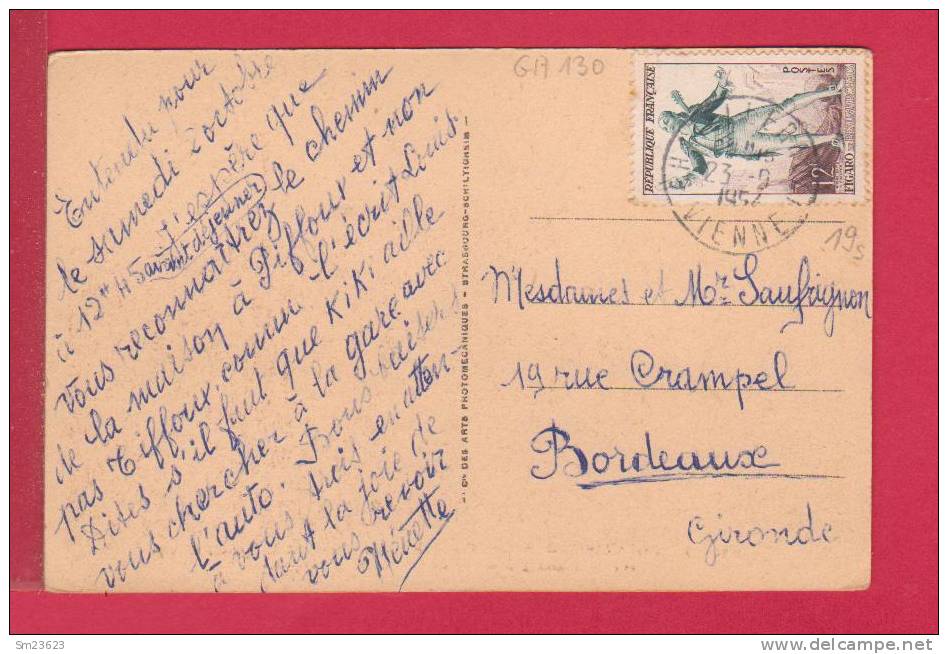 Entendu pour
le samedi 2 octobre
à 12H 45 avant déjeuner j'espère que
vous reconnaîtrez le chemin
de la maison à Piffoux et non
pas Tiffoux, comme l'écrit Louis.
Dites s'il faut que Kiki aille
vous chercher à la gare avec
l'auto. Bons baisers
à vous trois en atten-
dant la joie de
vous revoir
Nénette
ION DES ARTS PHOTOMECANIQUES - STRASBOURG-SCHILTIGHEIM -
GA 130
RÉPUBLIQUE FRANÇAISE
POSTES
12
FIGARO
23 -9
1954
VIENNE
19s
Mesdames et Mr Saufrignon
19 rue Crampel
Bordeaux
Gironde
Sm23623
www.delcampe.net